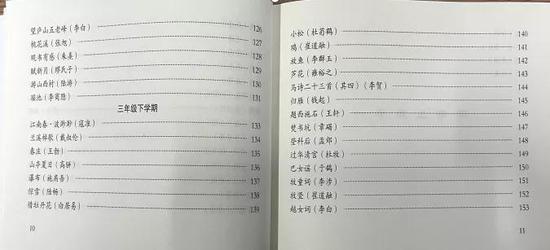 望庐山五老峰(李白) 126
桃花溪(张旭) 127
观书有感(朱熹) 128
赋新月(缪氏子) 129
游山西村(陆游) 130
瑶池(李商隐) 131
三年级下学期
江南春·波渺渺(寇准) 133
兰溪棹歌(戴叔伦) 134
春庄(王勃) 135
山亭夏日(高骈) 136
瀑布(施肩吾) 137
惊雪(陆畅) 138
惜牡丹花(白居易) 139
10
小松(杜荀鹤) 140
鸡(崔道融) 141
放鱼(李群玉) 142
芦花(雍裕之) 143
马诗二十三首(其四)(李贺) 144
归雁(钱起) 145
题西施石(王轩) 146
焚书坑(章碣) 147
登科后(孟郊) 148
过华清宫(杜牧) 149
巴女谣(于鹄) 150
牧童词(李涉) 151
牧竖(崔道融) 152
越女词(李白) 153
11